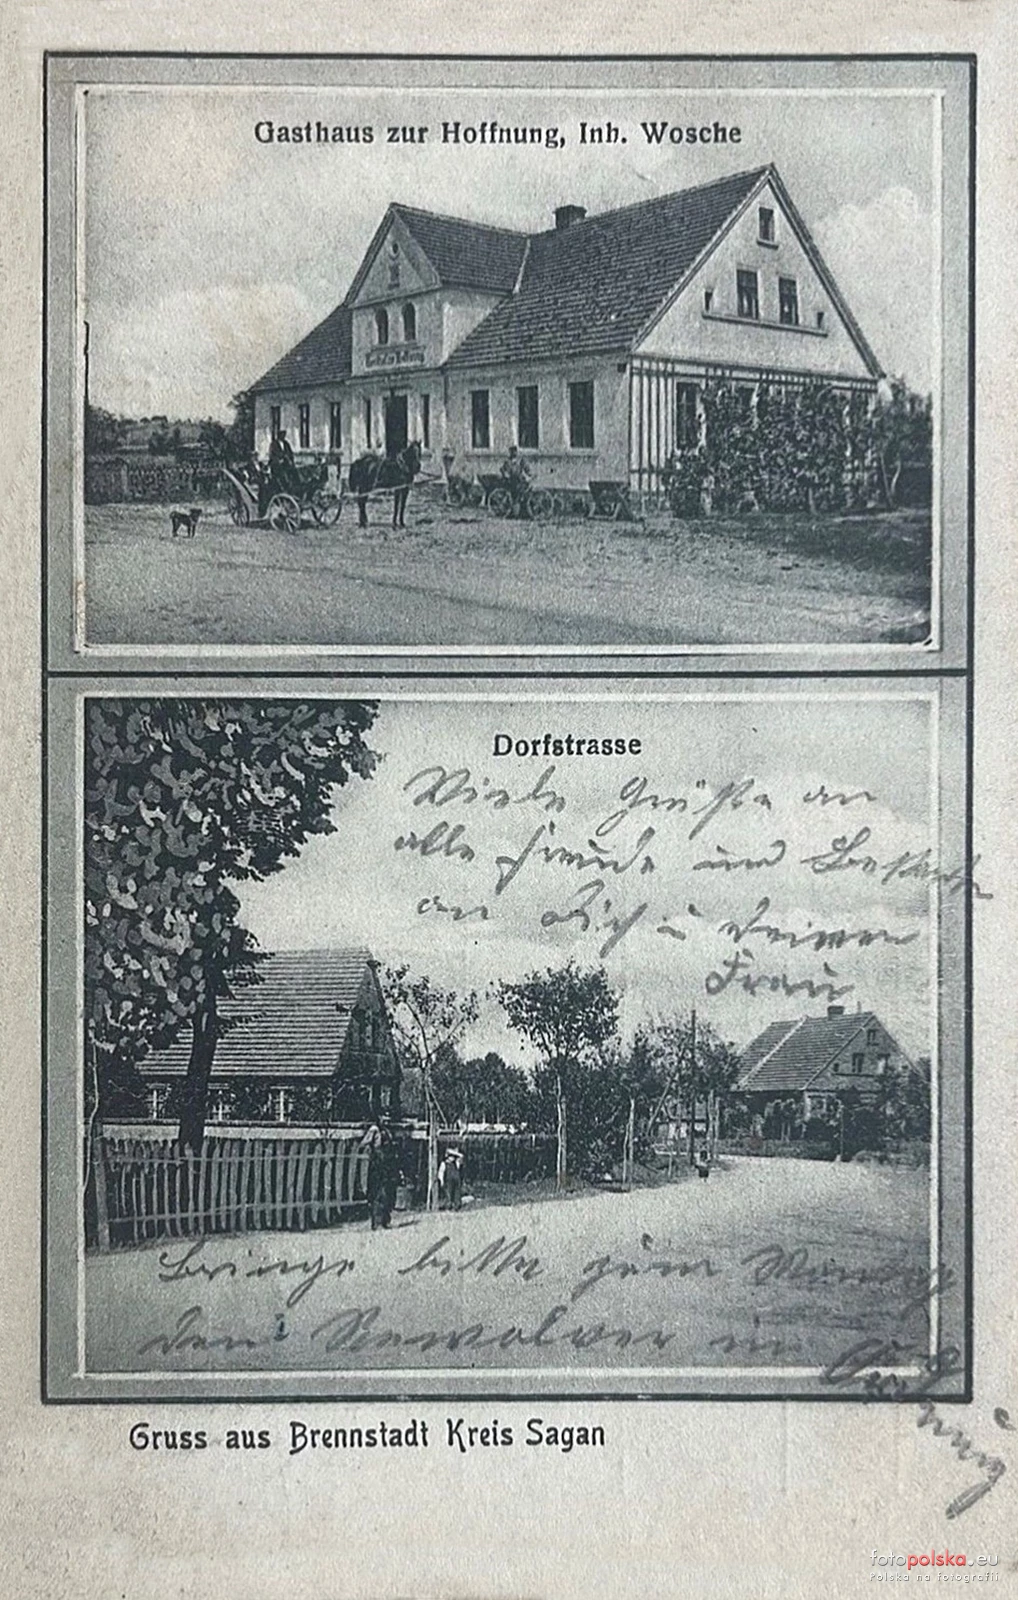 Gasthaus zur Hoffnung, Inh. Wosche
Dorfstrasse
Viele Grüße an
alle Freunde und
an Dich u Deinen
Frau
Bringe bitte zum
den Rewolver in
Ordnung
Gruss aus Brennstadt Kreis Sagan
fotopolska.eu
Polska na fotografii